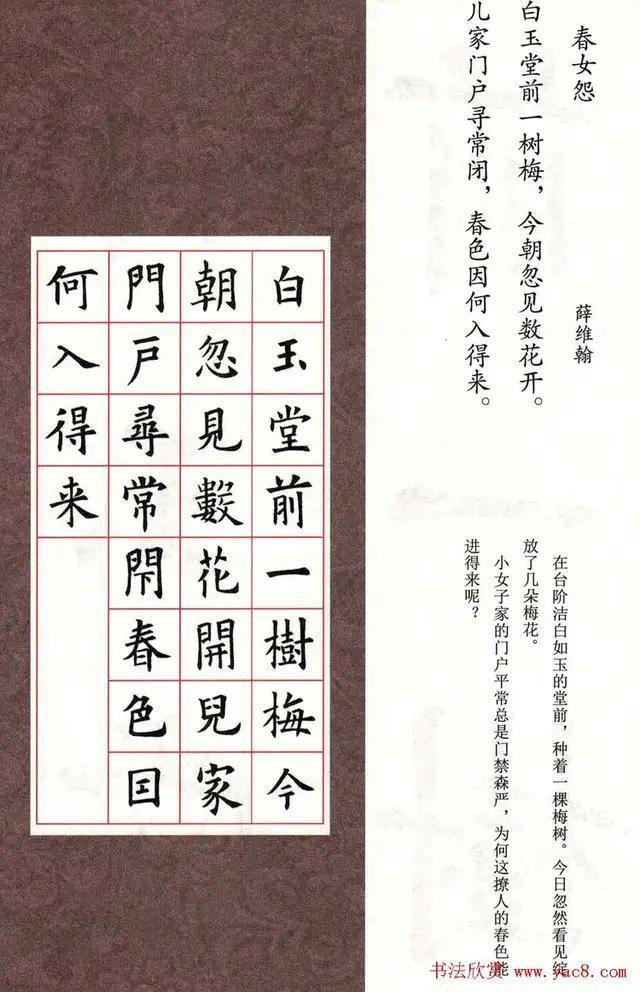 春女怨
薛维翰
白玉堂前一树梅，今朝忽见数花开。
儿家门户寻常闭，春色因何入得来。
在台阶洁白如玉的堂前，种着一棵梅树。今日忽然看见绽
放了几朵梅花。
小女子家的门户平常总是门禁森严，为何这撩人的春色能
进得来呢？
白玉堂前一樹梅今
朝忽見數花開兒家
門戶尋常閇春色囙
何入得来
书法欣赏 www.yac8.com